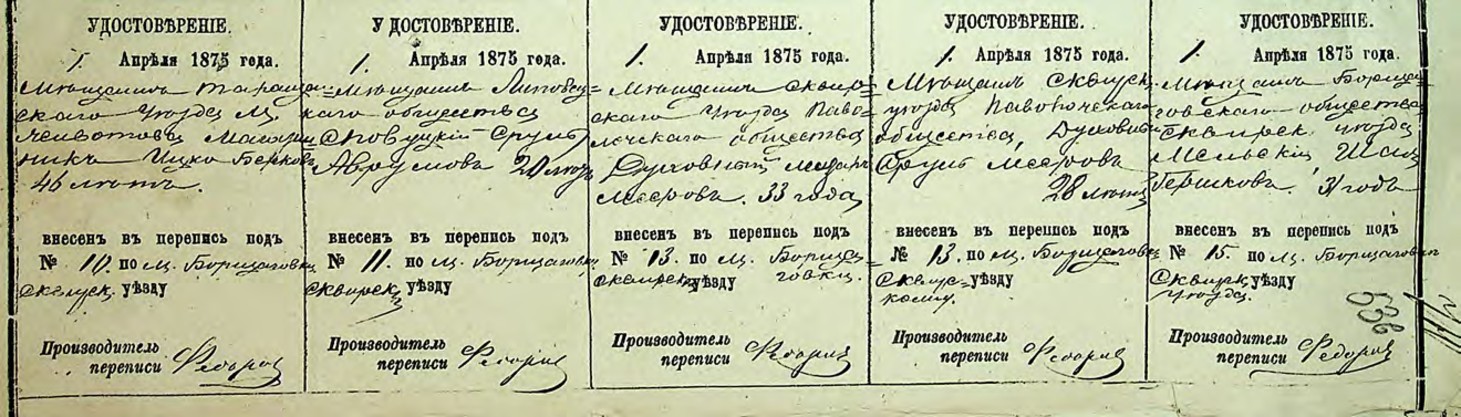 УДОСТОВѢРЕНІЕ.
1. Апрѣля 1875 года.
Мѣщанинъ Таращан=
скаго Уѣзда М.
Ицко Берковъ
46 лѣтъ.
внесенъ въ перепись подъ
№ 10. по м. Борщаговкѣ
Сквирск. уѣзду
Производитель
переписи
УДОСТОВѢРЕНІЕ.
1. Апрѣля 1875 года.
Мѣщанинъ Липовец=
каго общества
Сруль
Аврумовъ 20 лѣтъ
внесенъ въ перепись подъ
№ 11. по м. Борщаговкѣ
Сквирск. уѣзду
Производитель
переписи
УДОСТОВѢРЕНІЕ.
1. Апрѣля 1875 года.
Мѣщанинъ Сквир=
скаго Уѣзда Паво=
лочскаго общества
Духовный
Мееровъ. 33 года
внесенъ въ перепись подъ
№ 13. по м. Борща=
говкѣ.
Сквирск. уѣзду
Производитель
переписи
УДОСТОВѢРЕНІЕ.
1. Апрѣля 1875 года.
Мѣщанинъ Сквирск.
уѣзда Паволочскаго
общества, Духовный
Сруль Мееровъ
28 лѣтъ
внесенъ въ перепись подъ
№ 13. по м. Борщаговкѣ
Сквир=
скому. уѣзду
Производитель
переписи
УДОСТОВѢРЕНІЕ.
1. Апрѣля 1875 года.
Мѣщанинъ Борща=
говскаго общества
Сквирск. уѣзда
Мельскій
Гершковъ. 31 годъ
внесенъ въ перепись подъ
№ 15. по м. Борщаговкѣ
Сквирск. уѣзду
уѣзда.
Производитель
переписи
536